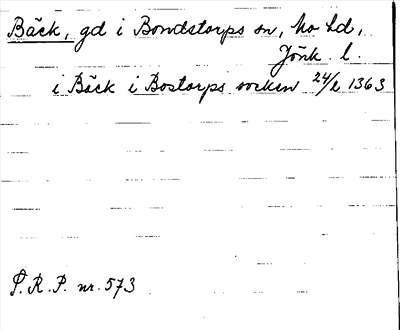 Bäck, gd i Bondstorps sn, Mo hd,
Jönk. l.
i Bäck i Bostorps socken 24/2 1363
S.R.P. nr. 573